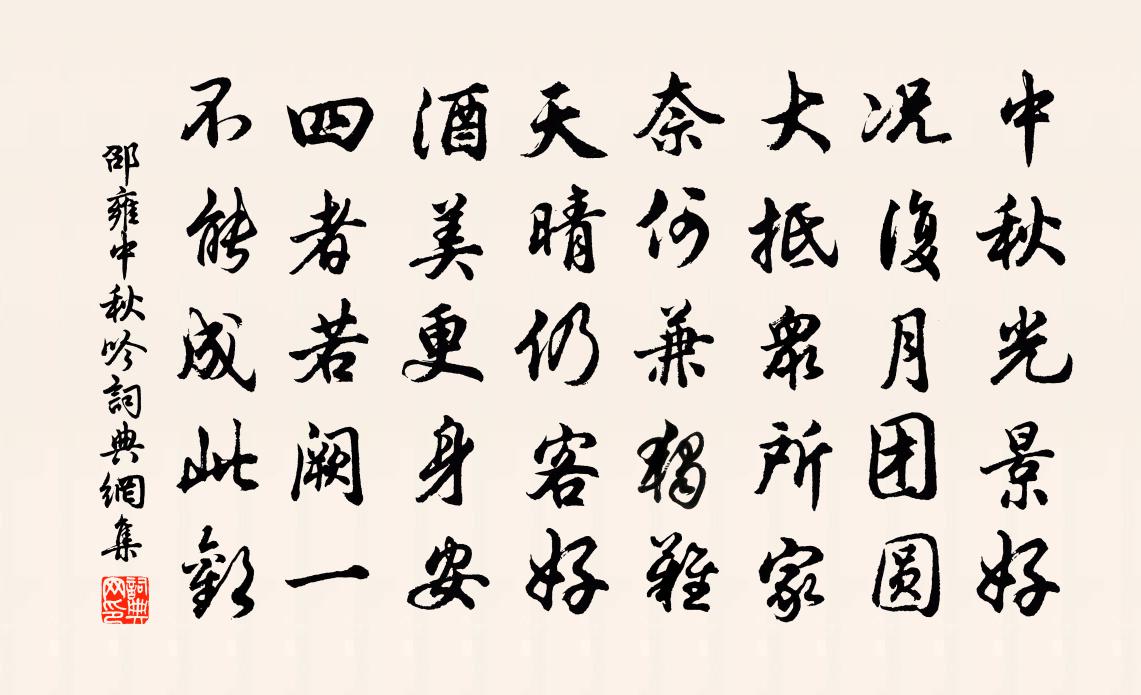 中秋光景好
况復月团圆
大抵衆所家
奈何兼獨難
天晴仍客好
酒美更身安
四者若阙一
不能成此歡
邵雍中秋吟詞典網集
詞典网印